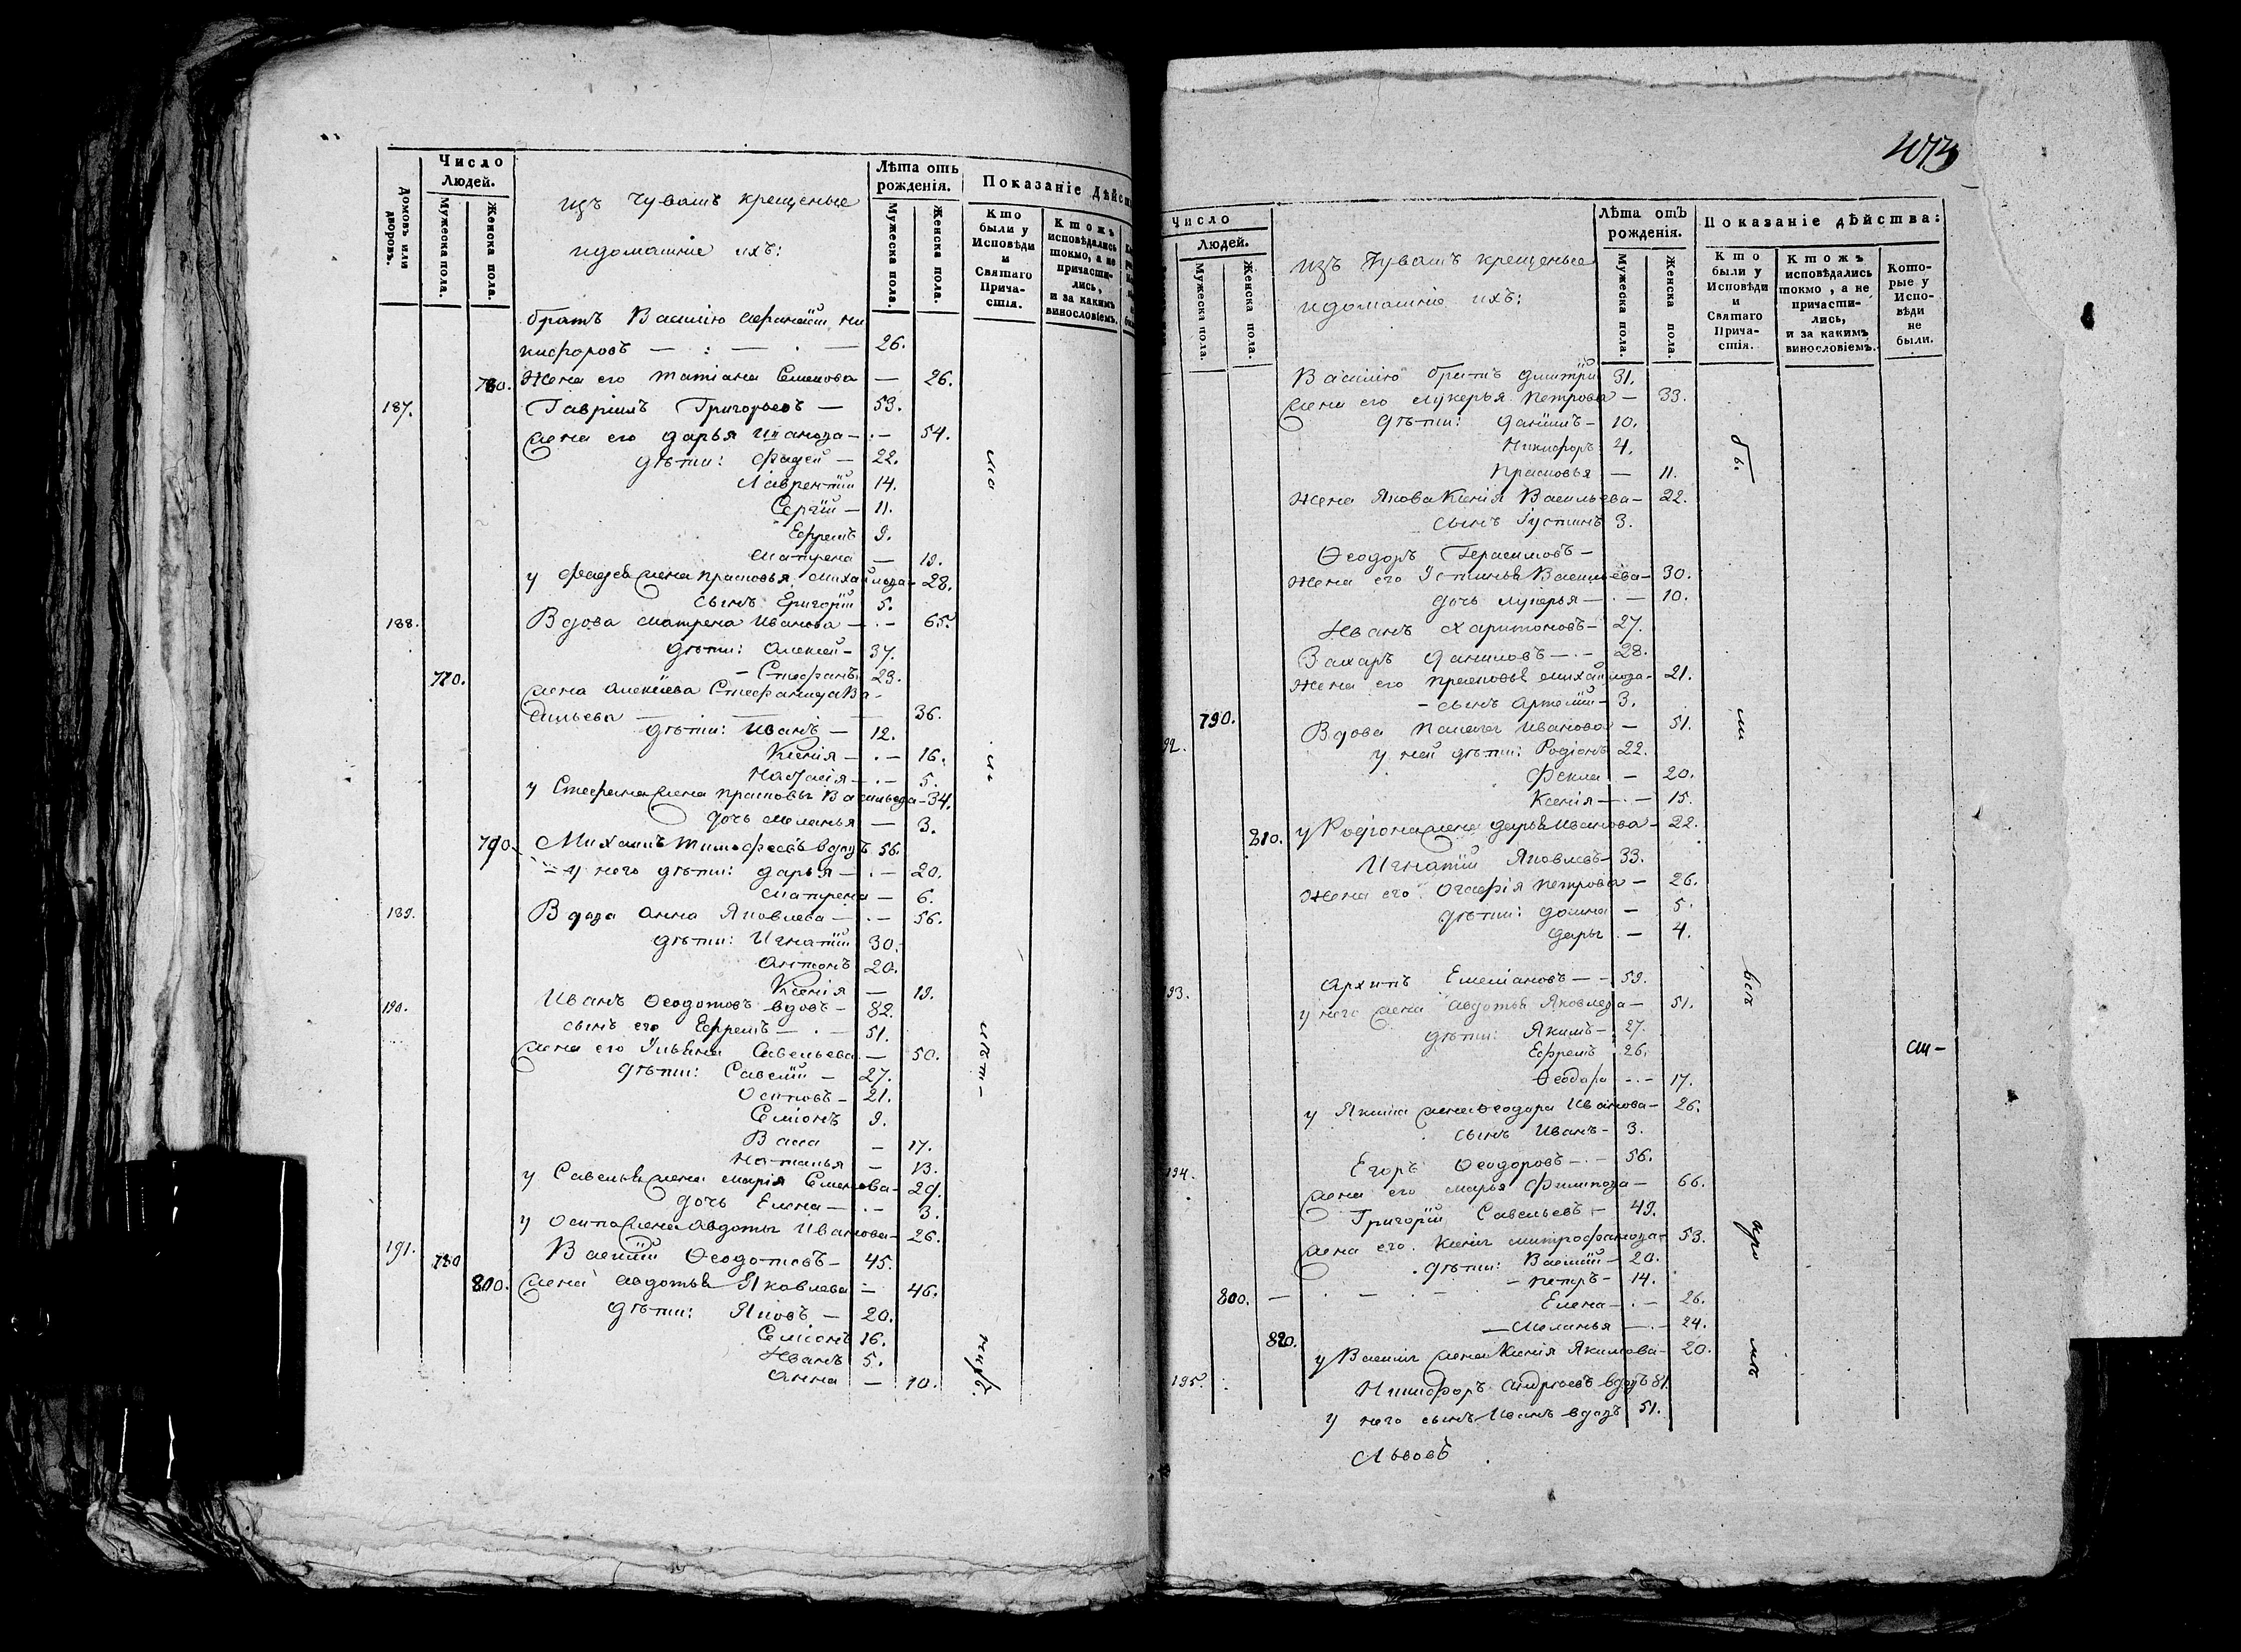 Число Людей.
Домовъ или дворовъ.
Мужеска пола.
Женска пола.
изъ Чувашъ крещеные
и домашніе ихъ:
Лѣта отъ рожденія.
Мужеска пола.
Женска пола.
Показаніе дѣйст
Кто были у Исповѣди и Святаго Прича-стія.
Ктожъ исповѣдались токмо, а не причасти-лись, и за какимъ винословіемъ.
братъ Василію Афанасій Ни
кифоровъ — : — . — 26.
780. Жена его Татіана Семенова — 26.
187. Гавріилъ Григорьевъ — 53.
жена его Дарья Иванова — . — 54.
дѣти: Фадей — 22.
Лаврентій 14.
Сергій — 11.
Ефремъ 9.
Матрена — 19.
у Фадея жена Прасковья Михайлова — 28.
сынъ Григорій 5.
188. Вдова Матрена Иванова — . — 65.
дѣти: Алексей — 37.
770. — Стефанъ 29.
жена Алексѣева Стефанида Ва-
сильева — 36.
дѣти: Иванъ — 12.
Ксенія — . — 16.
Настасія — . — 5.
у Стефана жена Прасковья Васильева — 34.
дочь Меланья — 3.
790. Михаилъ Тимофеевъ вдовъ 56.
у него дѣти: Дарья — . — 20.
Матрена — 6.
189. Вдова Анна Яковлева — . — 56.
дѣти: Игнатій 30.
Антонъ 20.
Ксенія — 19.
190. Иванъ Ѳеодотовъ вдовъ — 82.
сынъ его Ефремъ — . — 51.
жена его Ульяна Савельева — 50.
дѣти: Савелій — 27.
Осиповъ — 21.
Семіонъ 9.
Васса — 17.
Наталья — 13.
у Савелья жена Марія Семенова — 29.
дочь Елена — . — 3.
у Осипа жена Авдотья Иванова — 26.
191. 780 Василій Ѳеодотовъ — 45.
800. жена Авдотья Яковлева — 46.
дѣти: Яковъ — 20.
Семіонъ 16.
Иванъ 5.
Анна — 10.
Число Людей.
Мужеска пола.
Женска пола.
изъ Чувашъ крещеные
и домашніе ихъ:
Лѣта отъ рожденія.
Мужеска пола.
Женска пола.
Показаніе дѣйства:
Кто были у Исповѣди и Святаго Прича-стія.
Ктожъ исповѣдались токмо, а не причасти-лись, и за какимъ винословіемъ.
Кото-рые у Испо-вѣди не были.
Василію братъ Дмитрій 31.
жена его Лукерья Петрова — 33.
дѣти: Даніилъ — 10.
Никифоръ 4.
Прасковья — 11.
Жена Якова Ксенія Васильева — 22.
сынъ Іустинъ 3.
Ѳеодоръ Герасимовъ —
Жена его Устинья Васильева — 30.
дочь Лукерья — . — 10.
Иванъ Харитоновъ — 27.
Захаръ Даниловъ — . — 28.
Жена его Прасковья Михайлова — 21.
— сынъ Артемій — 3.
92. 790. Вдова Палагея Иванова — 51.
у ней дѣти: Родіонъ 22.
Фекла — 20.
Ксенія — . — 15.
810. у Родіона жена Дарья Иванова — 22.
Игнатій Яковлевъ — 33.
Жена его Агафія Петрова — 26.
дѣти: Домна — 5.
Дарья — 4.
193. Архипъ Емеліановъ — 59.
у него жена Авдотья Яковлева — 51.
дѣти: Якимъ — 27.
Ефремъ 26.
Ѳеодора — . — 17.
у Якима жена Ѳеодора Иванова — 26.
сынъ Иванъ — 3.
194. Егоръ Ѳеодоровъ — . — 56.
жена его Марья Филипова — 66.
Григорій Савельевъ — 49.
жена его Ксенія Митрофанова — 53.
дѣти: Василій — 20.
— Петръ — 14.
800. — . — . — Елена — . — 26.
— Меланья — . — 24.
820. у Василія жена Ксенія Якимова — 20.
195. Никифоръ Андреевъ вдовъ 81.
у него сынъ Иванъ вдовъ 51.
Львовъ